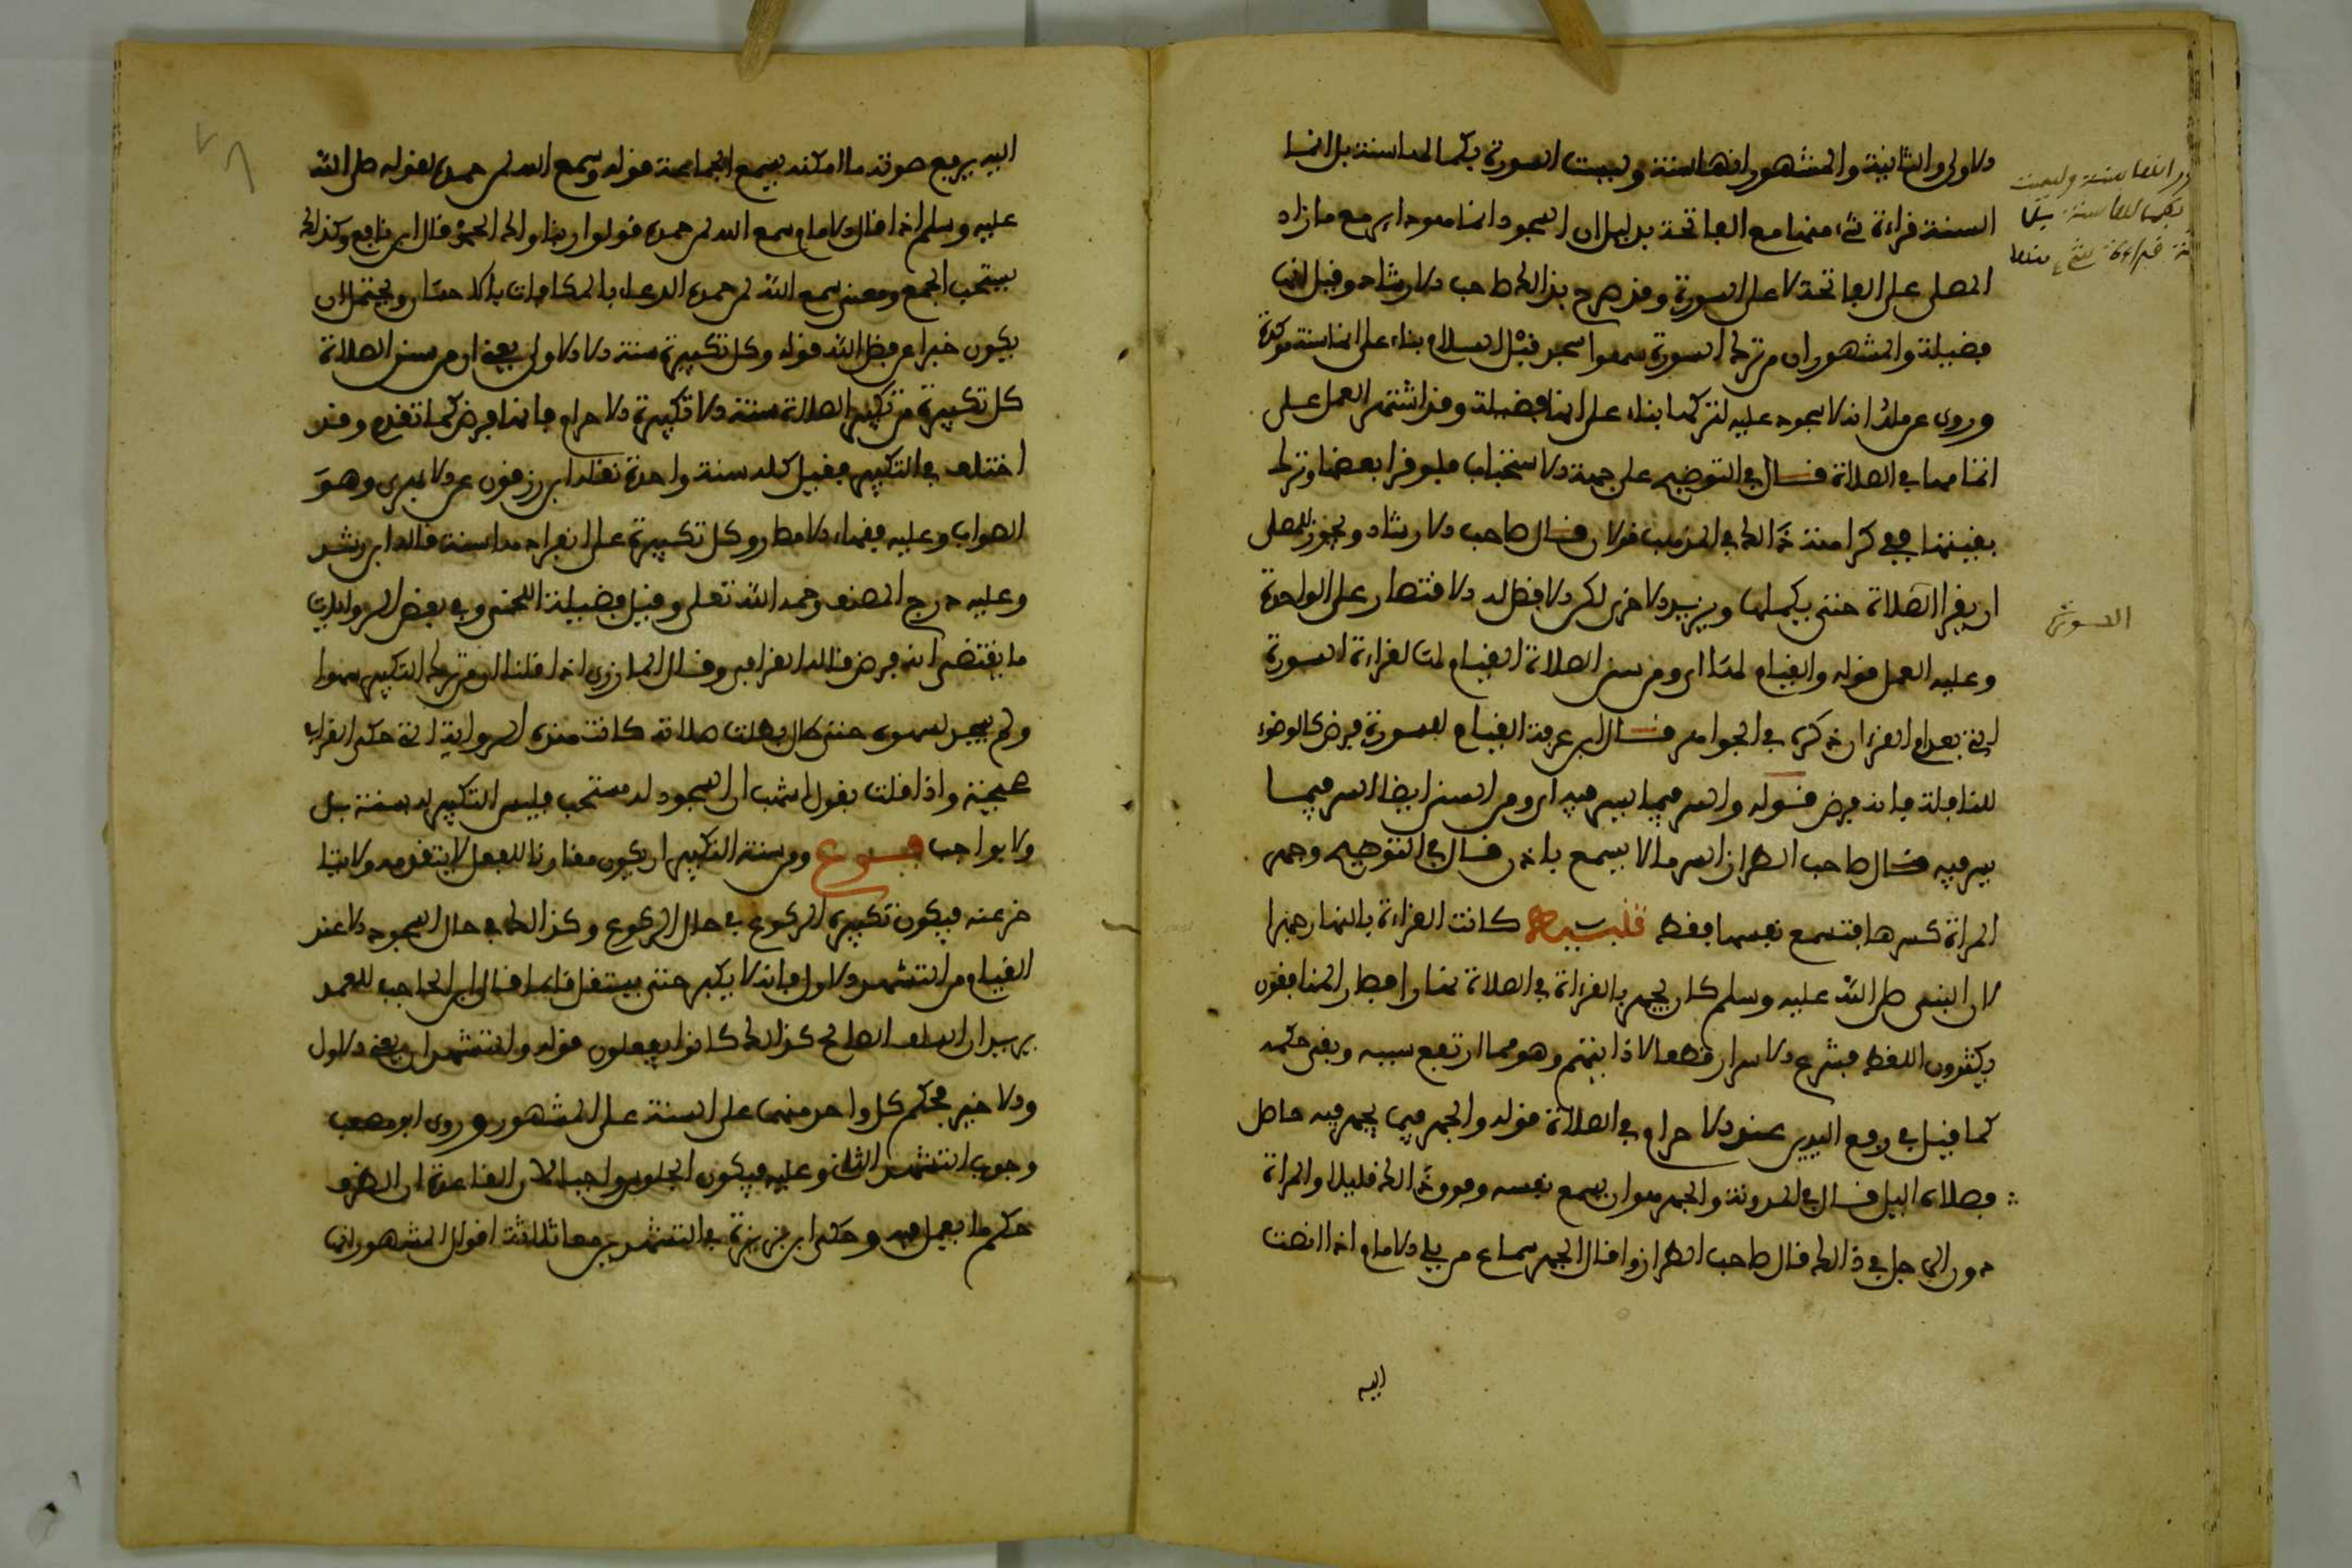 الاولى والثانية والمشهور انها سنة وليست السورة بكمالها سنة بل انما
السنة قراءة شيء منها مع الفاتحة بدليل ان السجود انما هو دائر مع ما زاد
المصلي على الفاتحة لا على السورة وقد صرح بذالك صاحب الارشاد وقيل انها
فضيلة والمشهور ان من ترك السورة سهوا سجد قبل السلام بناء على انها سنة مؤكدة
وروى عن ملك انه لا سجود عليه لتركها بناء على انها فضيلة وقد اشتهر العمل على
اتمامها في الصلاة قال في التوضيح على جهة الاستحباب فلو قرا بعضها وترك
بقيتها ففي كراهته ذالك في المذهب قولان قال صاحب الارشاد ويجوز للمصلي
ان يقرا الصلاة حتى يكملها ويزيد الاخرى لكن الافضل له الاقتصار على الواحدة
وعليه العمل قوله والقيام لها اي ومن سنن الصلاة القيام لها لقراءة السورة
التي بعد ام القران ذكره في الجواهر قال ابن عرفة القيام للسورة فرض كالوضوء
للنافلة فانه فرض قوله والسر فيما يسر فيه اي ومن السنن ايضا السر فيما
يسر فيه قال صاحب الطراز السر ما لا يسمع باذن قال في التوضيح وجهر
المراة كسرها فتسمع نفسها فقط تنبيه كانت القراءة بالنهار جهرا
لان النبي صلى الله عليه وسلم كان يجهر بالقراءة في الصلاة نهارا فصار المنافقون
يكثرون اللغط فشرع الاسرار قطعا لاذايتهم وهو مما ارتفع سببه وبقي حكمه
كما قيل في رفع اليدين عند الاحرام في الصلاة قوله والجهر فيما يجهر فيه حاصل
فصلاة اليل قال في المدونة والجهر هو ان يسمع نفسه وفوق ذالك قليلا والمراة
دون الرجل في ذالك قال صاحب الطراز واقل الجهر سماع من يلي الامام اذا انصت
اليه
ور انها سنة وليست
بكمالها سنة بل
نة قراءة شيء منها
السورة
اليه يرفع صوته ما امكنه يسمع الجماعة قوله وسمع الله لمن حمده لقوله صلى الله
عليه وسلم اذا قال الامام سمع الله لمن حمده قولوا ربنا ولك الحمد قال ابن نافع وكذلك
يستحب الجمع ومعنى سمع الله لمن حمده الدعاء بالمكافات بالاحسان ويحتمل ان
يكون خبرا عن فضل الله قوله وكل تكبيرة سنة الا الاولى يعني ان من سنن الصلاة
كل تكبيرة من تكبير الصلاة سنة الا تكبيرة الاحرام فانها فرض كما تقدم وقد
اختلف في التكبير فقيل كله سنة واحدة نقله ابن زرقون عن الابهري وهو
الصواب وعليه فقهاء الامطار وكل تكبيرة على انفرادها سنة قاله ابن رشد
وعليه درج المصنف رحمه الله تعلى وقيل فضيلة اللخمي وفي بعض الروايات
ما يقتضي انه فرض قاله القرافي وقال المازري اذا قلنا ان من ترك التكبير سهوا
ولم يسجد لسهوه حتى طال بطلت صلاته كانت هذه الرواية التي حكم القرافي
صحيحة واذا قلت بقول اشهب ان السجود له مستحب فليس التكبير له بسنة بل
ولا بواجب فروع ومن سنة التكبير ان يكون مقارنا للفعل لا يتقدمه ولا يتا
خر عنه فيكون تكبيرة الركوع في حال الركوع وكذالك في حال السجود الا عند
القيام من التشهد الاول فانه لا يكبر حتى يستقل قائما قال ابن الحاجب للعمد
يريد ان السلف الصالح كذالك كانوا يفعلون قوله والتشهدان يعني الاول
والاخير فحكم كل واحد منهما على السنة على المشهور وروى ابو مصعب
وجوب التشهد الثاني وعليه فيكون الجلوس واجبا لان القاعدة ان الظرف
حكم ما يعمل فيه وحكى ابن بزيزة في التشهدين معا ثلاثة اقوال المشهور انها